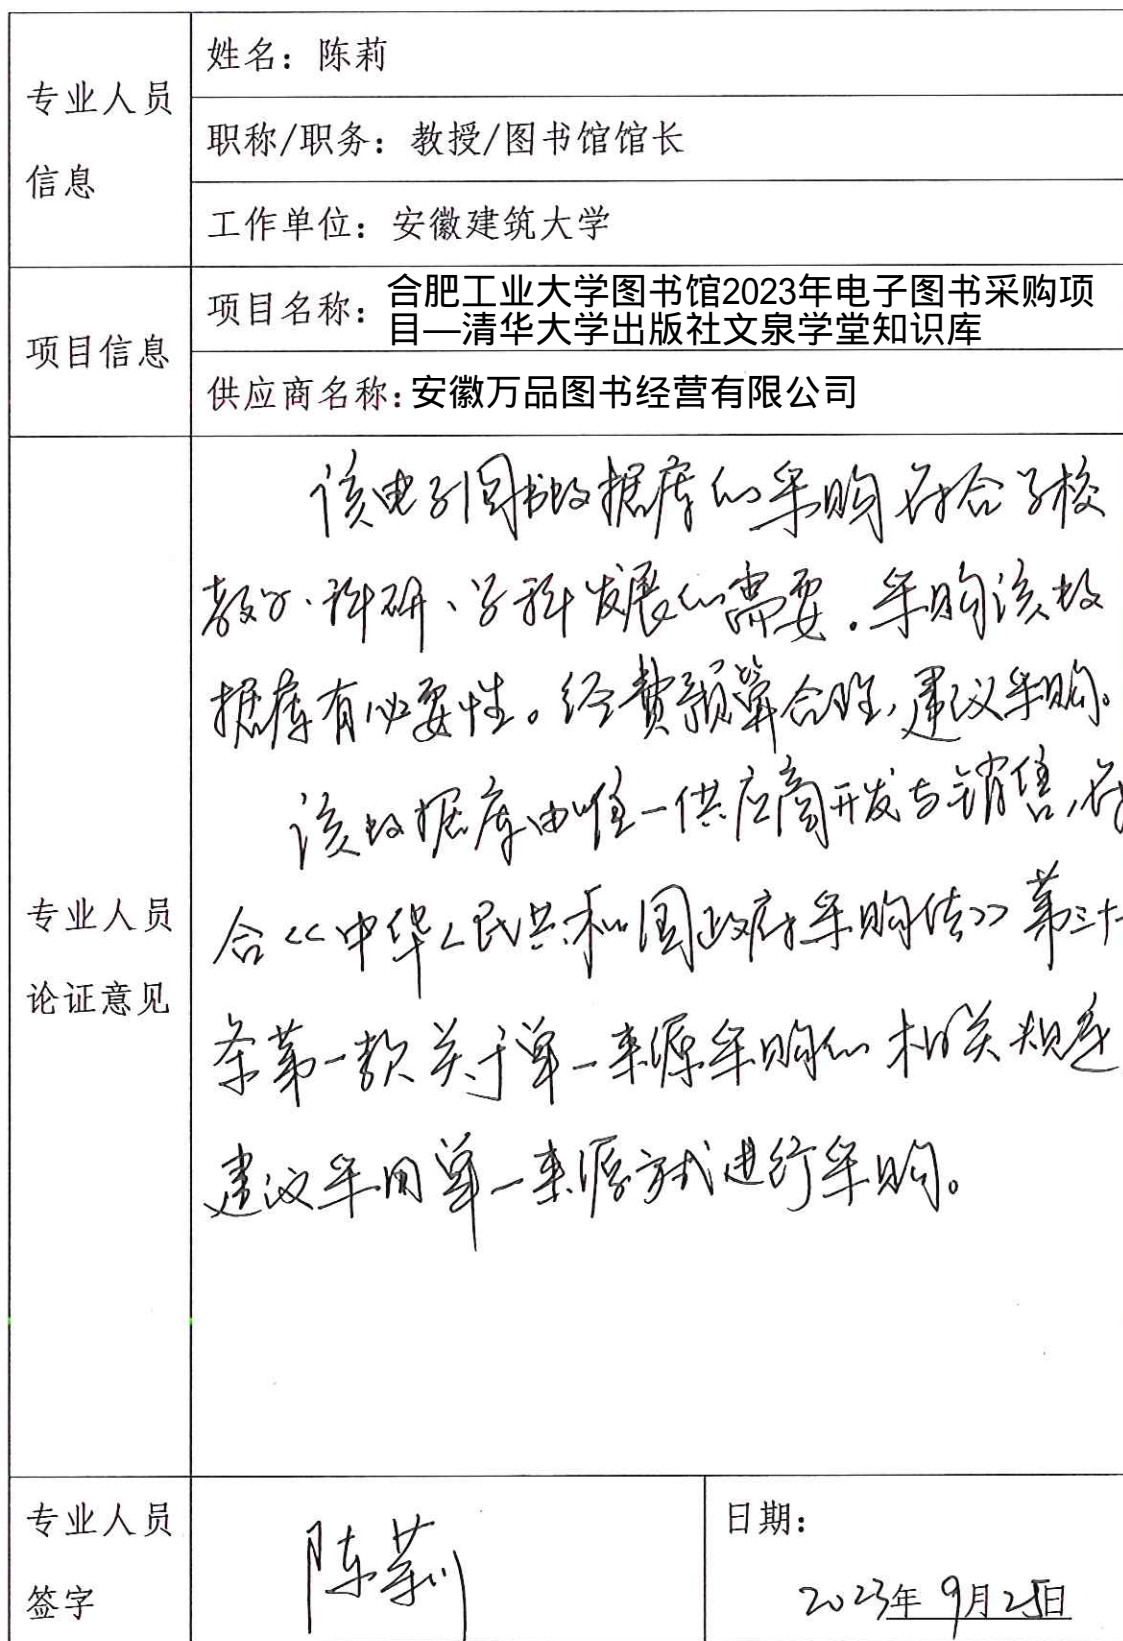 专业人员
信息
姓名：陈莉
职称/职务：教授/图书馆馆长
工作单位：安徽建筑大学
项目信息
项目名称：合肥工业大学图书馆2023年电子图书采购项
目—清华大学出版社文泉学堂知识库
供应商名称：安徽万品图书经营有限公司
专业人员
论证意见
该电子图书数据库的采购符合学校
教学、科研、学科发展的需要。采购该数
据库有必要性。经费预算合理，建议采购。
该数据库由唯一供应商开发与销售，符
合<<中华人民共和国政府采购法>>第三十一
条第一款关于单一来源采购的相关规定
建议采用单一来源方式进行采购。
专业人员
签字
陈莉
日期：
2023年9月25日